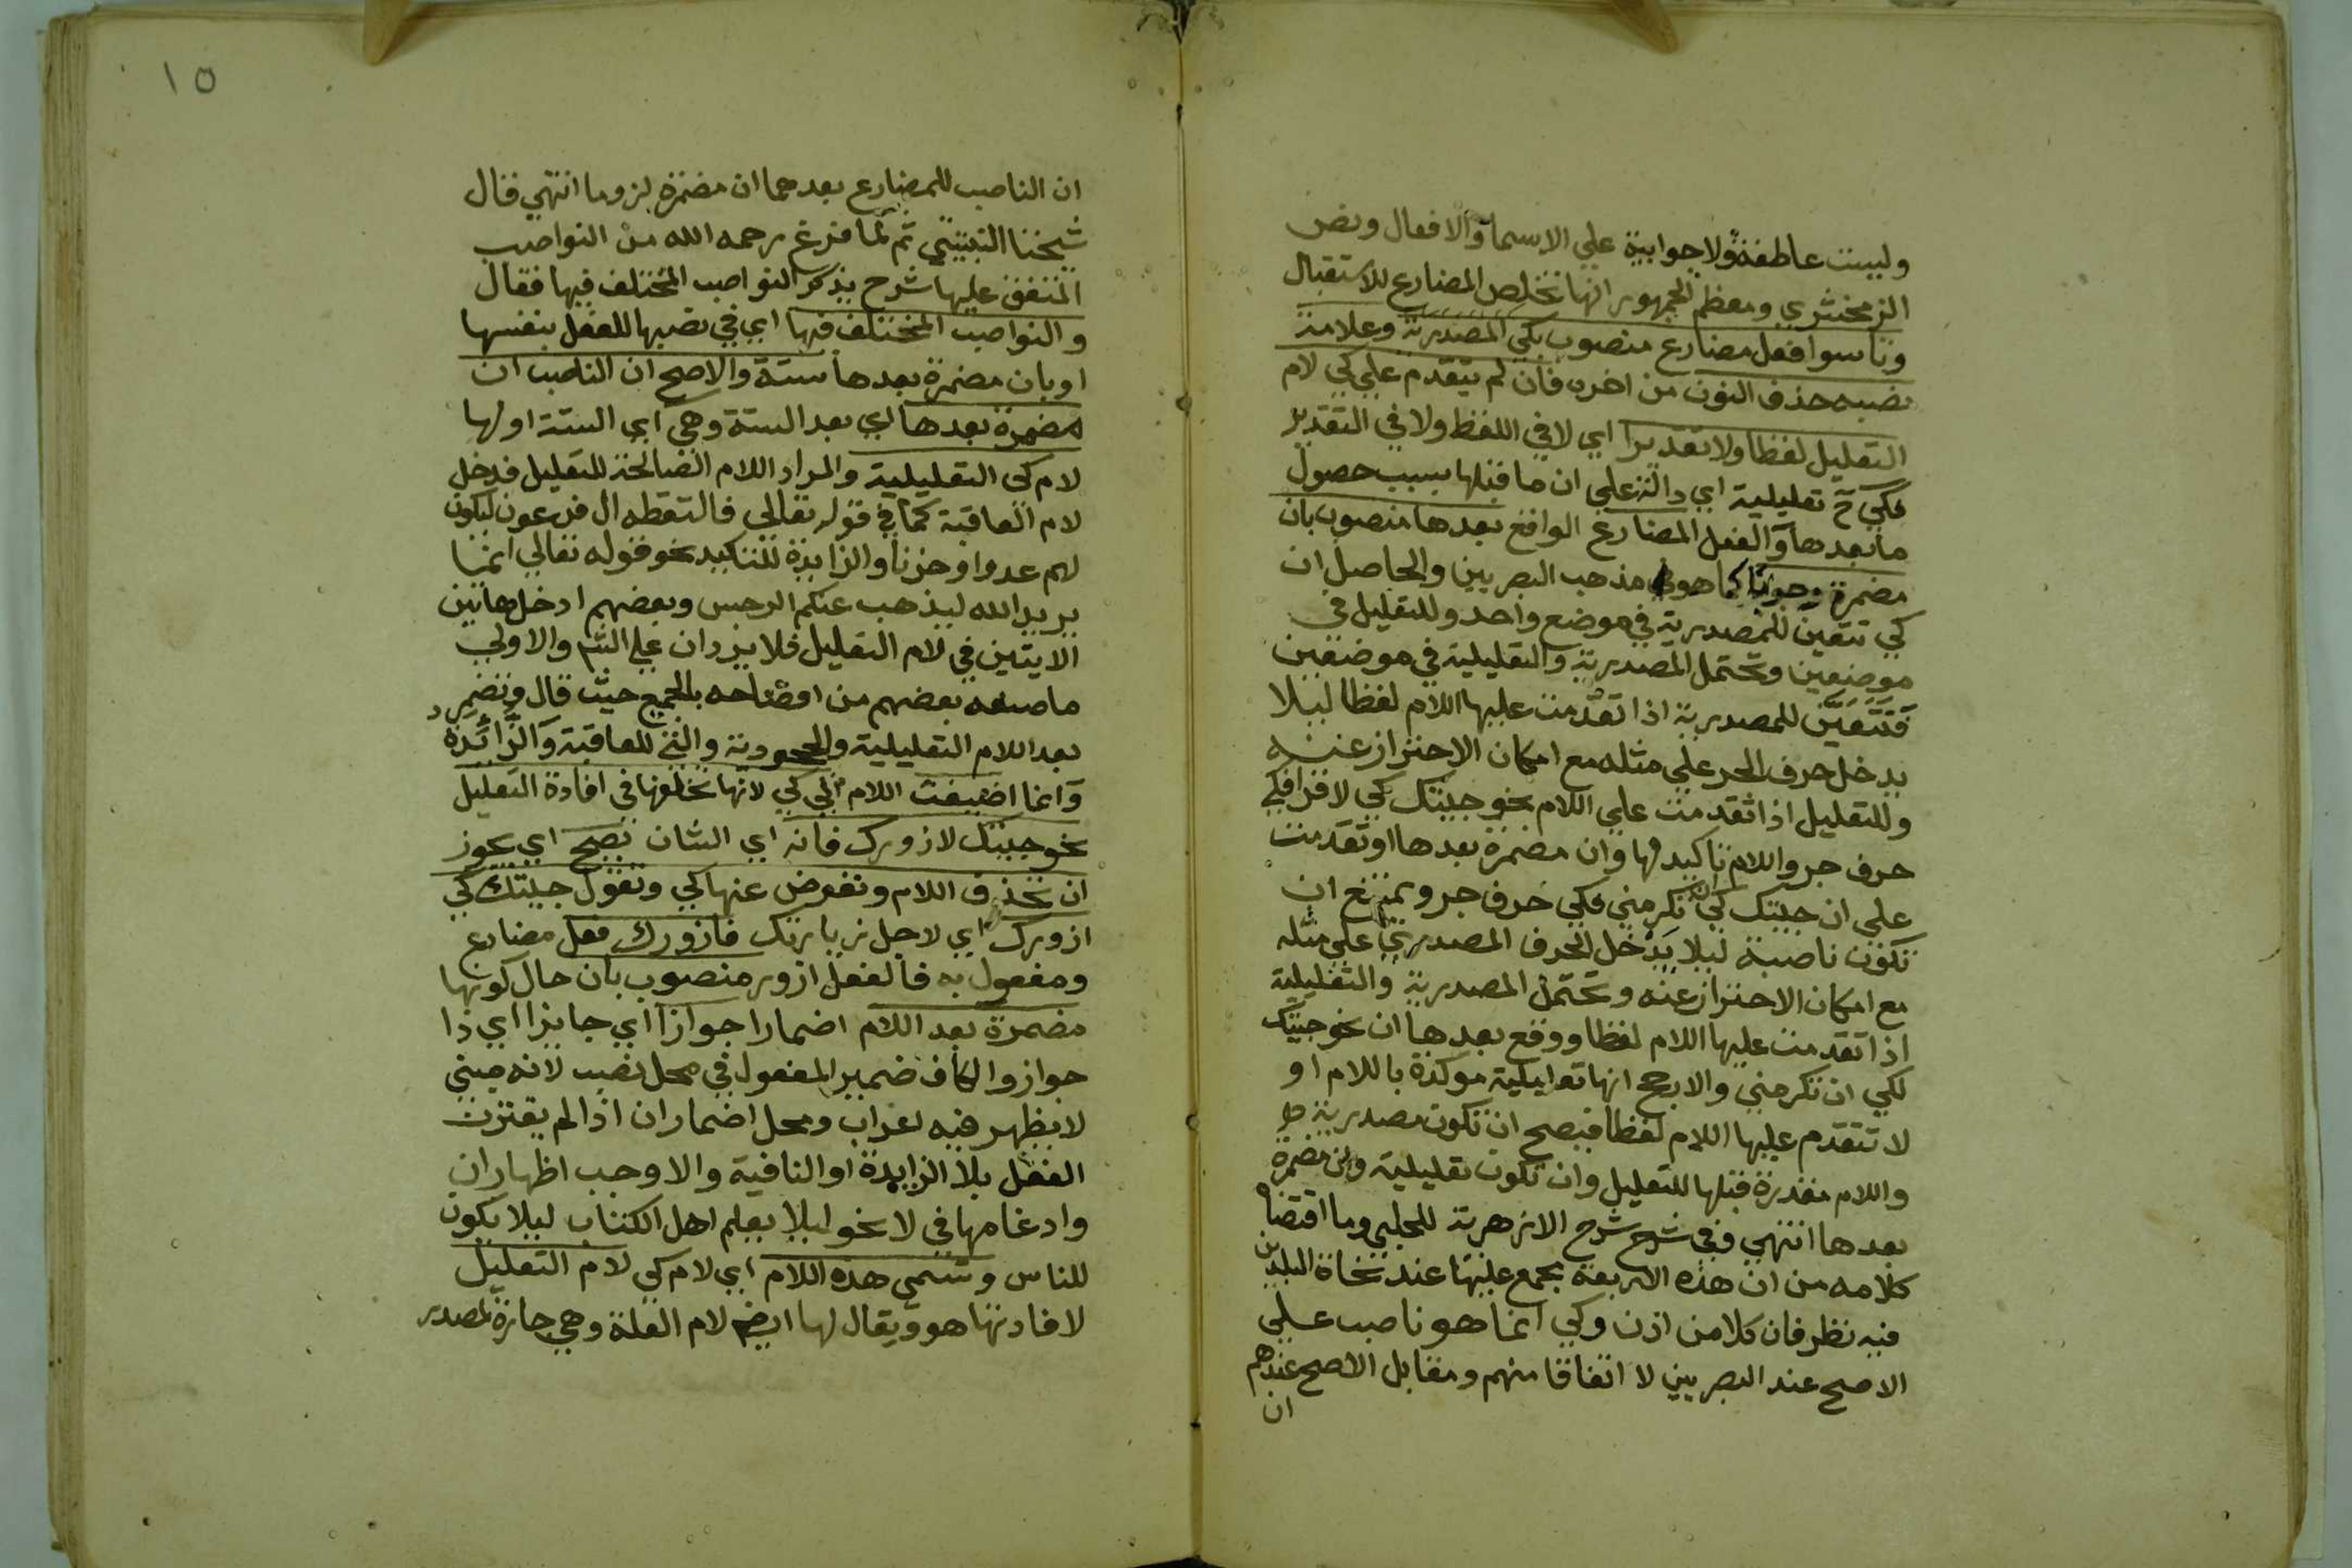 وليست عاطفة ولا جوابية على الاسما والافعال ونص
الزمخشري ومعظم الجمهور انها تخلص المضارع للاستقبال
وتاسوا فعل مضارع منصوب بكي المصدرية وعلامة
نصبه حذف النون من اخره فان لم يتقدم علي كي لام
التعليل لفظا ولا تقديرا اي لا في اللفظ ولا في التقدير
فكي ح تعليلية اي دالة علي ان ما قبلها بسبب حصول
ما بعدها والفعل المضارع الواقع بعدها منصوب بان
مضمرة وجوبا كما هو مذهب البصريين والحاصل ان
كي تتعين للمصدرية في موضع واحد وللتعليل في
موضعين وتحتمل المصدرية والتعليلية في موضعين
فتتعين للمصدرية اذا تقدمت عليها اللام لفظا ليلا
يدخل حرف الجر علي مثله مع امكان الاحتراز عنه
وللتعليل اذا تقدمت علي اللام نحو جيتك كي لاقرا فكي
حرف جر واللام تاكيد لها وان مضمرة بعدها او تقدمت
علي ان جيتك كي ان تكرمني فكي حرف جر ويمتنع ان
تكون ناصبة ليلا يدخل الحرف المصدري علي مثله
مع امكان الاحتراز عنه وتحتمل المصدرية والتعليلية
اذا تقدمت عليها اللام لفظا ووقع بعدها ان نحو جيتك
لكي ان تكرمني والارجح انها تعليلية موكدة باللام او
لا تتقدم عليها اللام لفظا فيصح ان تكون مصدرية
واللام مقدرة قبلها للتعليل وان تكون تعليلية وان مضمرة
بعدها انتهي وفي شرح شرح الازهرية للحلبي وما اقتضاه
كلامه من ان هذه الاربعة مجمع عليها عند نحاة البلدين
فيه نظر فان كلا من اذن وكي انما هو ناصب علي
الاصح عند البصريين لا اتفاقا منهم ومقابل الاصح عندهم
ان
١٥
ان الناصب للمضارع بعدهما ان مضمرة لزوما انتهي قال
شيخنا النبتيتي ثم لما فرغ رحمه الله من النواصب
المتفق عليها شرح بذكر النواصب المختلف فيها فقال
والنواصب المختلف فيها اي في نصبها للفعل بنفسها
او بان مضمرة بعدها ستة والاصح ان الناصب ان
مضمرة بعدها اي بعد الستة وهي اي الستة اولها
لام كي التعليلية والمراد اللام الصالحة للتعليل فدخل
لام العاقبة كما في قوله تعالي فالتقطه ال فرعون ليكون
لهم عدوا وحزنا والزايدة للتاكيد نحو قوله تعالي انما
يريد الله ليذهب عنكم الرجس وبعضهم ادخل هاتين
الايتين في لام التعليل فلا يردان علي الشم والاولي
ما صنعه بعضهم من افصاحه بالجميع حيث قال وتضمر
بعد اللام التعليلية والجحودية والتي للعاقبة والزائدة
وانما اضيفت اللام الي كي لانها تخلفها في افادة التعليل
نحو جيتك لازورك فانه اي الشان يصح اي يجوز
ان تحذف اللام وتعوض عنها كي وتقول جيتك كي
ازورك اي لاجل زيارتك فازورك فعل مضارع
ومفعول به فالفعل ازور منصوب بان حال كونها
مضمرة بعد اللام اضمارا جوازا اي جايزا اي ذا
جواز والكاف ضمير المفعول في محل نصب لانه مبني
لا يظهر فيه اعراب ومحل اضمار ان اذا لم يقترن
الفعل بلا الزايدة او النافية والا وجب اظهار ان
وادغامها في لا نحو ليلا يعلم اهل الكتاب ليلا يكون
للناس وتسمي هذه اللام اي لام كي لام التعليل
لافادتها هو ويقال لها ايضا لام العلة وهي جارة لمصدر